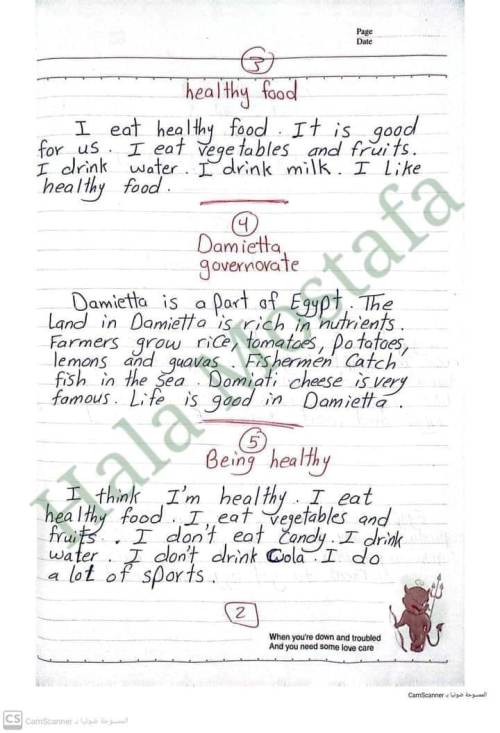 Page
Date
3
healthy food
I eat healthy food. It is good
for us. I eat vegetables and fruits.
I drink water. I drink milk. I Like
healthy food.
4
Damietta
governovate
Damietta is a part of Egypt. The
Land in Damietta is rich in nutrients.
Farmers grow rice, tomatoes, potatoes,
lemons and guavas. Fishermen Catch
fish in the sea. Domiati cheese is very
famous. Life is good in Damietta.
5
Being healthy
I think I'm healthy. I eat
healthy food. I eat vegetables and
fruits. I don't eat Candy. I drink
water. I don't drink Cola. I do
a lot of sports.
2
When you're down and troubled
And you need some love care
Hala Mostafa
الممسوحة ضوئيا بـ CamScanner
CS CamScanner الممسوحة ضوئيا بـ